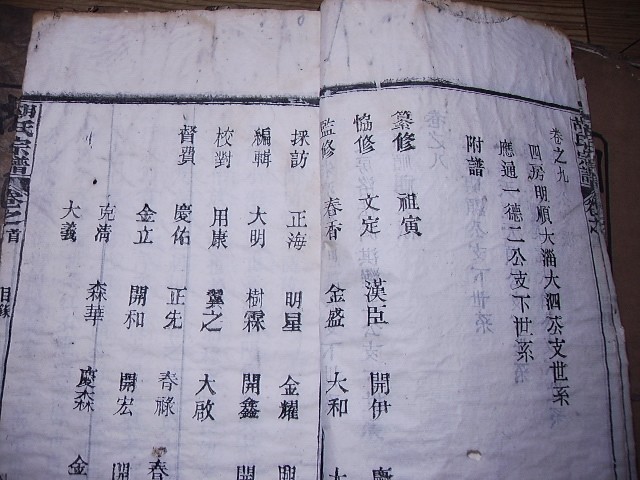 卷之九
四房明順大淄大泗公支世系
應通一德二公支下世系
附譜
纂修 祖寅 漢臣 開伊 慶
恊修 文定
監修 春香 金盛 大和 大
採訪 正海 明星 金耀
編輯 大明 樹霖 開鑫 開
校對 用康 翼之 大啟
督費 慶佑 正先 春祿 春
金立 開和 開宏 開
克清 森華 慶森 金
大義
胡氏宗譜 卷之首 目錄